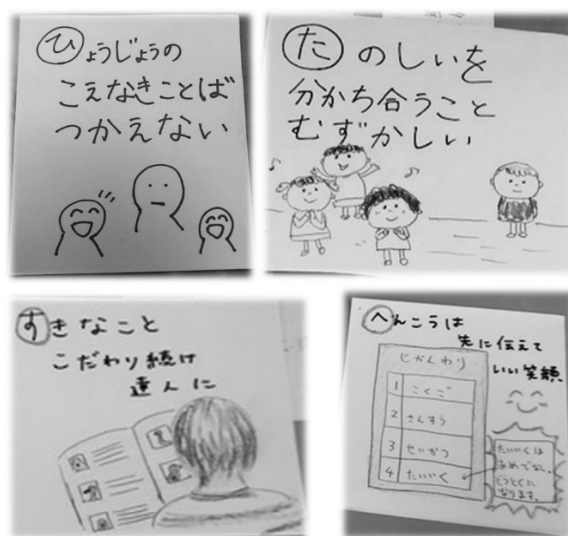 ひょうじょうの
こえなきことば
つかえない
たのしいを
分かち合うこと
むずかしい
すきなこと
こだわり続け
達人に
へんこうは
先に伝えて
いい笑顔
じかんわり
1 こくご
2 さんすう
3 せいかつ
4 たいいく
たいいくは
あめでなし。
どうとくに
なります。